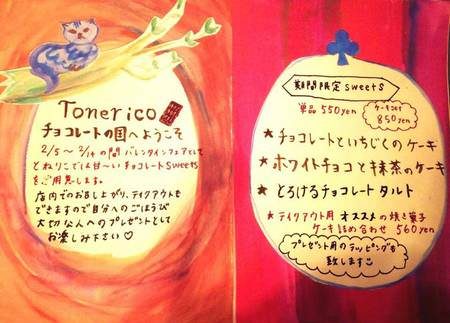 Tonerico
チョコレートの国へようこそ
2/5～2/14の間バレンタインフェアとして
とねりこでは甘～いチョコレートsweets
をご用意します。
店内でのお召し上がり、テイクアウトも
できますので自分へのごほうび
大切な人へのプレゼントとして
お楽しみ下さい♡
期間限定sweets
単品 550yen
ケーキset
850yen
★チョコレートといちじくのケーキ
★ホワイトチョコと抹茶のケーキ
★とろけるチョコレートタルト
★テイクアウト用 オススメの焼き菓子
ケーキ詰め合わせ 560yen
プレゼント用のラッピングも
致します